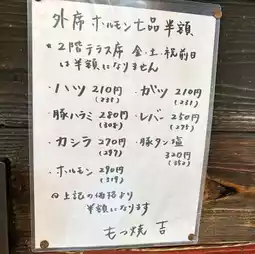 外席 ホルモン七品 半額
※2階テラス席 金・土・祝前日
は半額になりません
・ハツ 210円
(231)
・ガツ 210円
(231)
・豚ハラミ 280円
(308)
・レバー 250円
(275)
・カシラ 270円
(297)
・豚タン塩
320円
(352)
・ホルモン 290円
(319)
◎上記の価格より
半額になります
もつ焼 吉